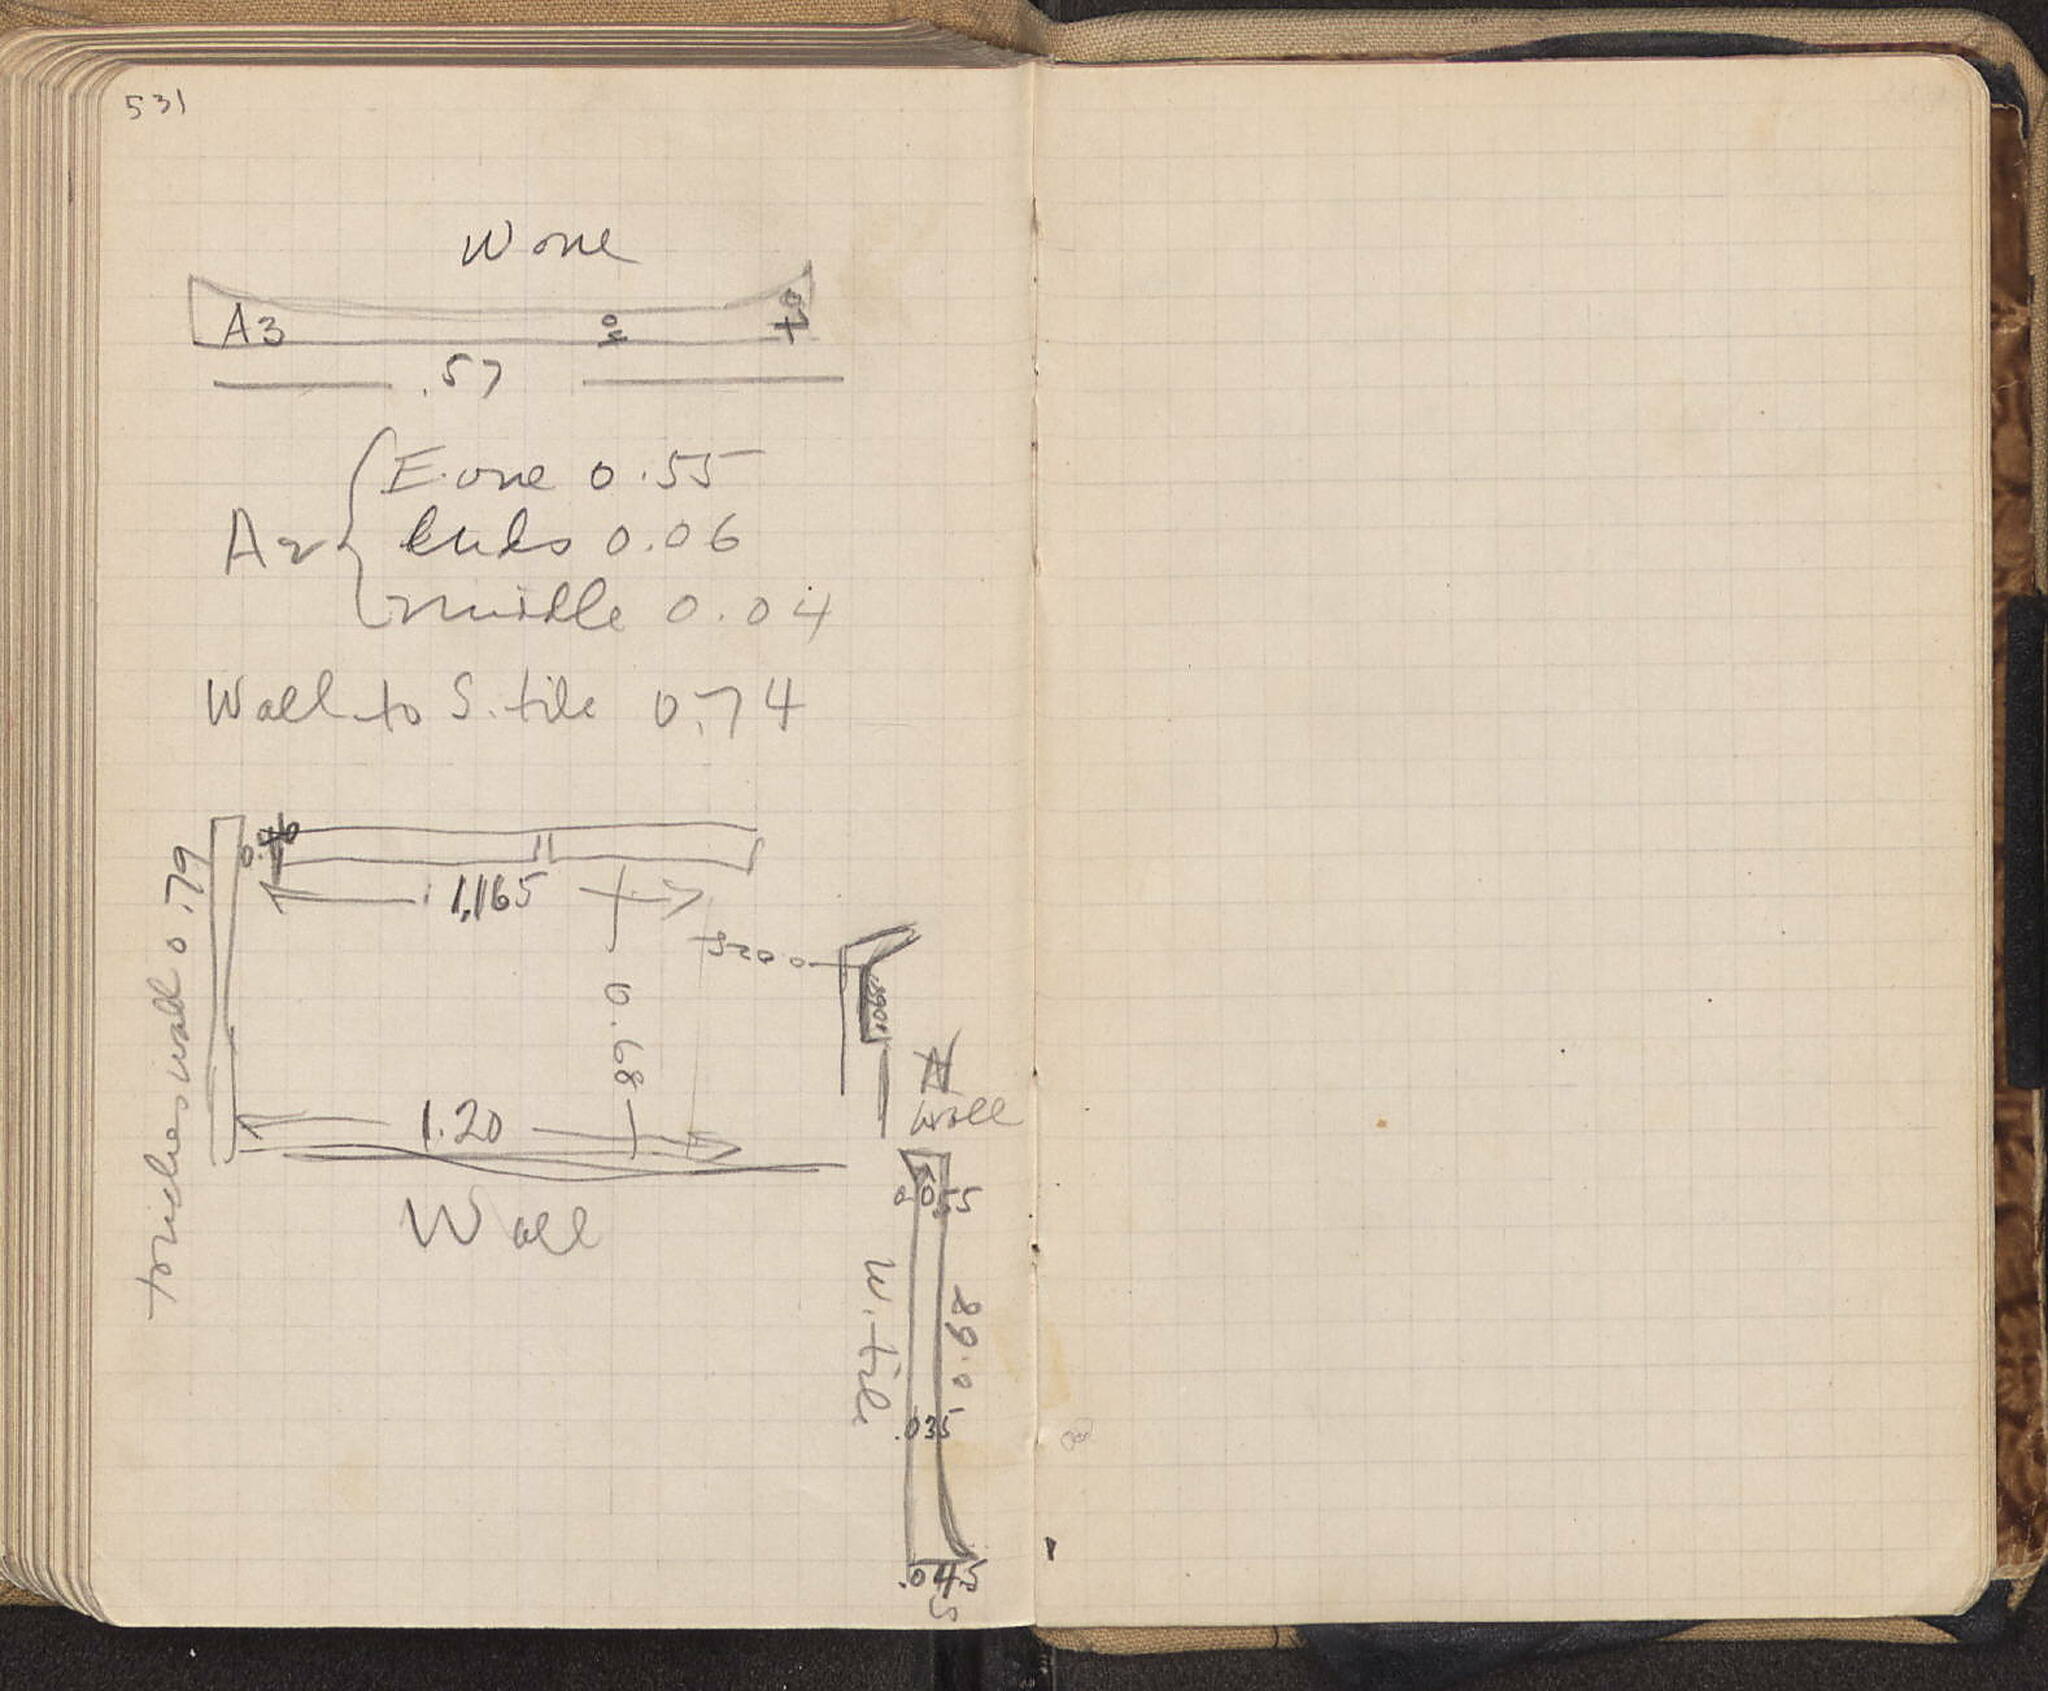 531
W one
A3
.57
A2 { E. one 0.55
Ends 0.06
middle 0.04
Wall to S. tile 0.74
touches wall 0.79
1.165
0.68
1.20
Wall
N
Wall
0.055
W. tile
0.68
.035
.045
S